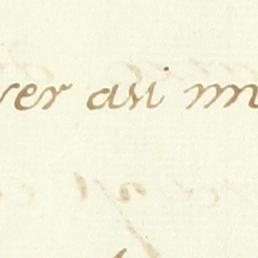 ver asi m